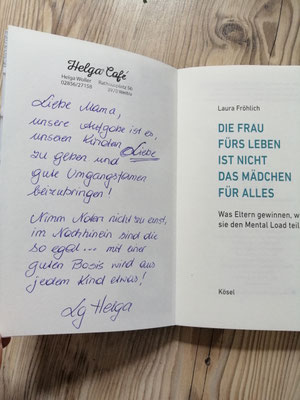 Helga Café
Helga Wolter
02856/27158
Liebe Mama,
unsere Aufgabe ist es,
unseren Kindern Liebe
zu geben und
gute Umgangsformen
beizubringen!
Nimm Noten nicht zu ernst,
im Nachhinein sind die
so egal... mit einer
guten Basis wird aus
jedem Kind etwas!
Lg Helga
Laura Fröhlich
DIE FRAU
FÜRS LEBEN
IST NICHT
DAS MÄDCHEN
FÜR ALLES
Was Eltern gewinnen, w
sie den Mental Load teil
Kösel